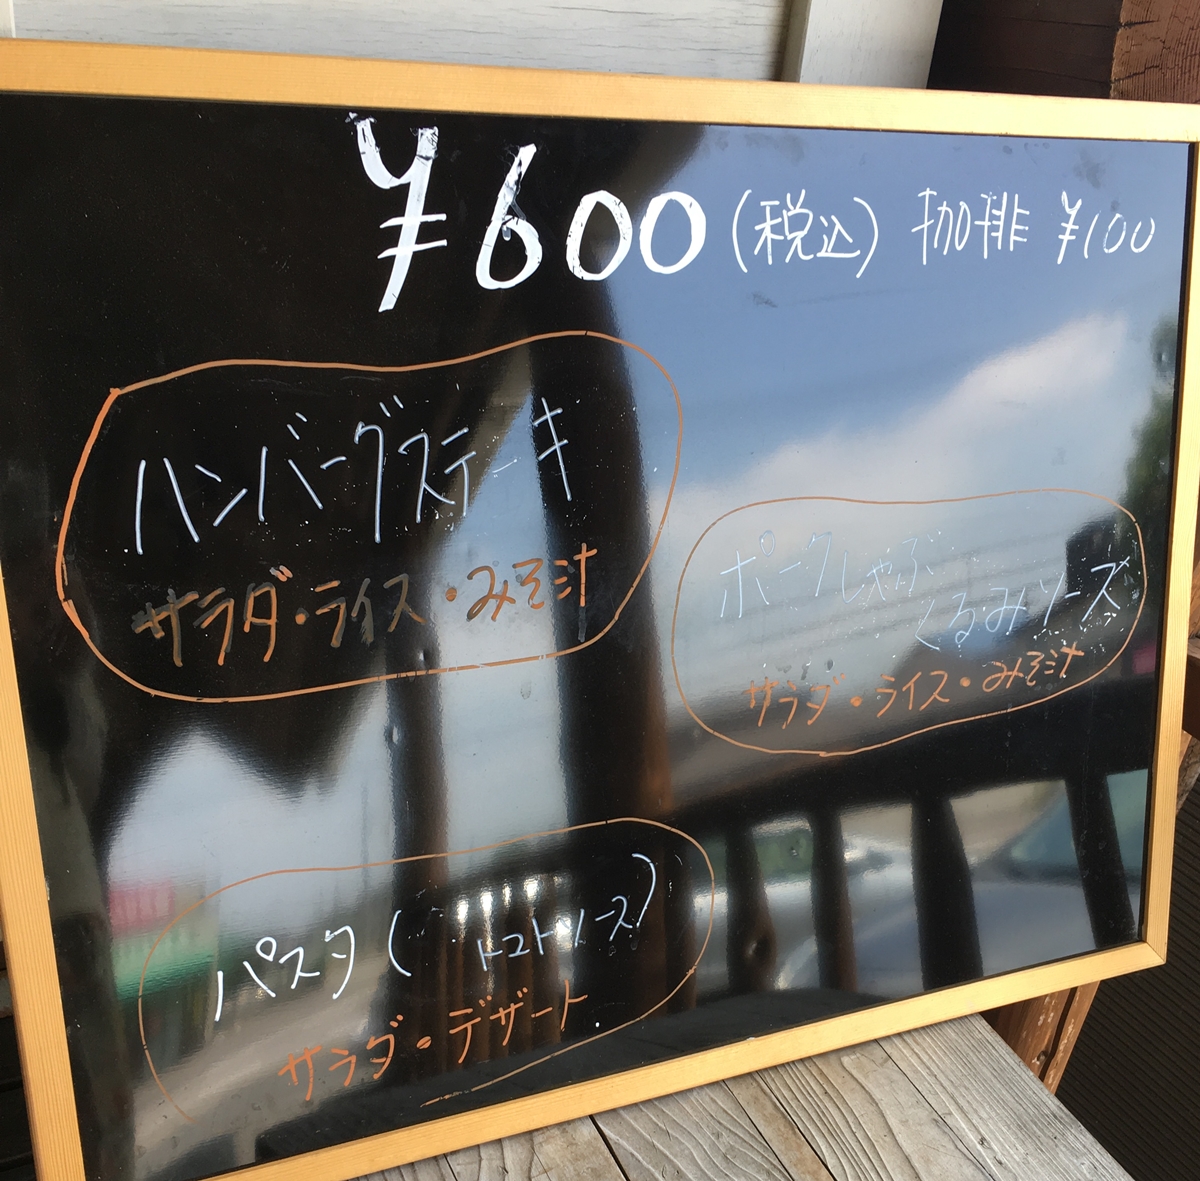 ¥600(税込) 珈琲 ¥100
ハンバーグステーキ
サラダ・ライス・みそ汁
ポークしゃぶ
くるみソース
サラダ・ライス・みそ汁
パスタ(トマトソース)
サラダ・デザート